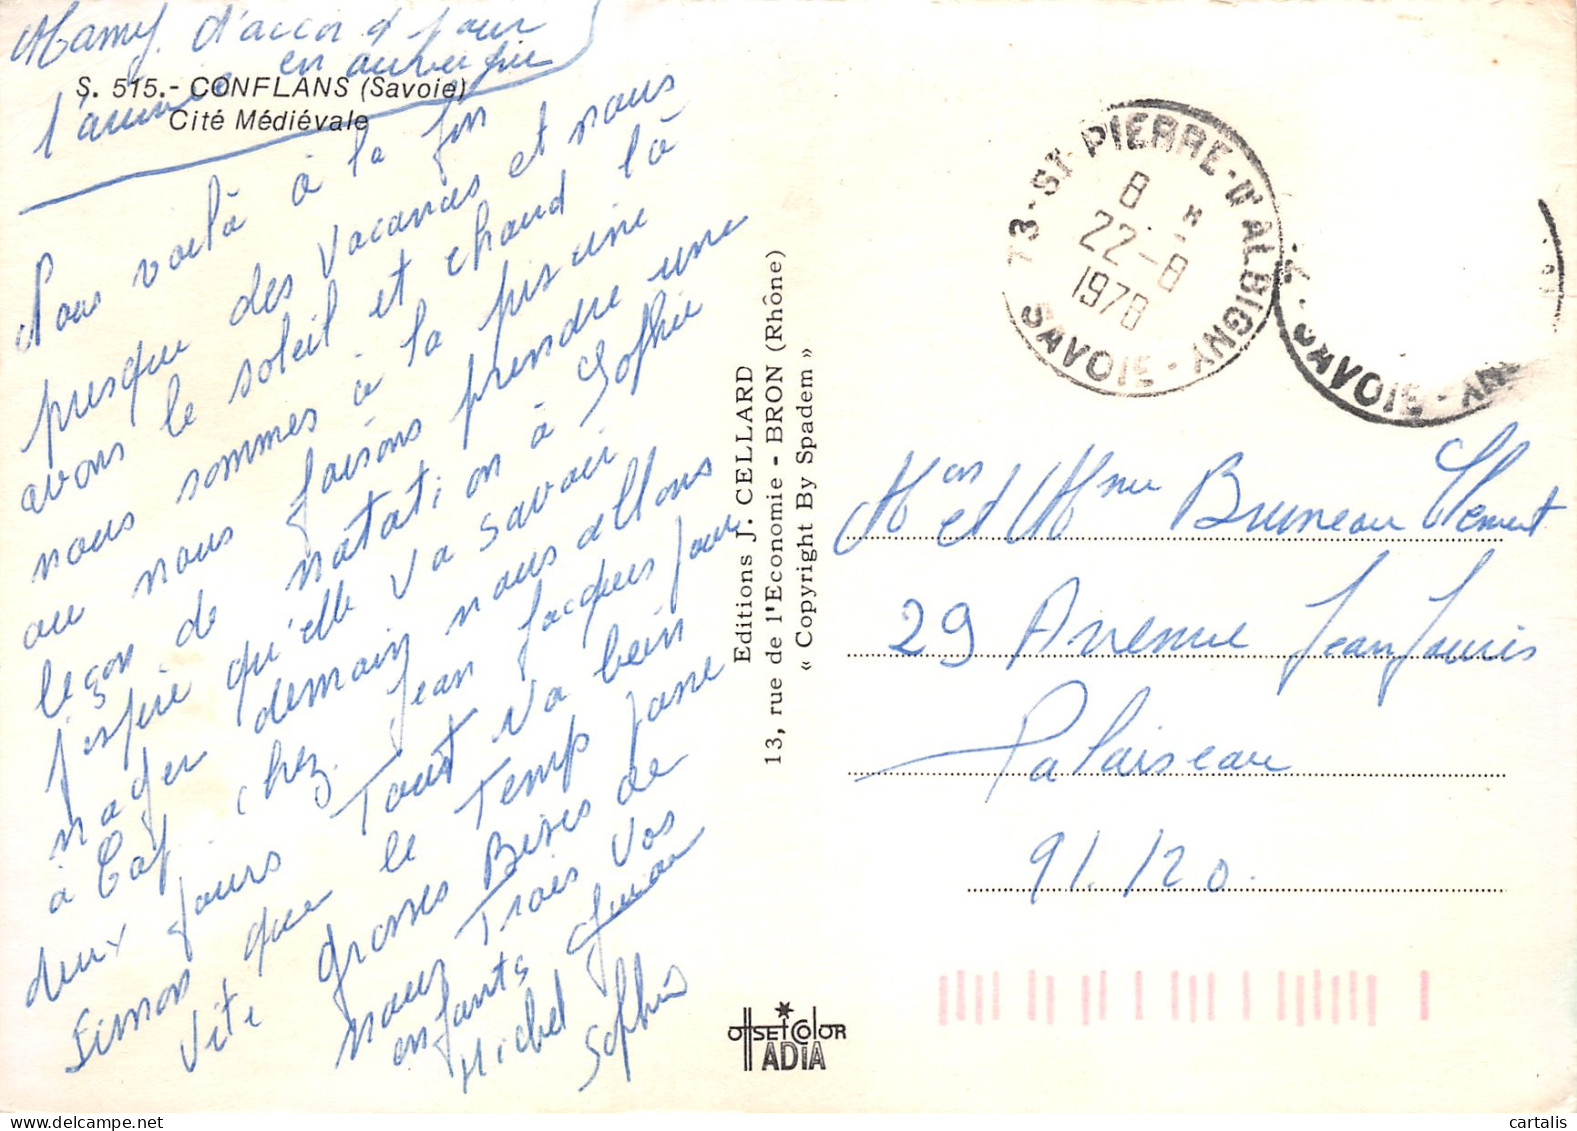 Mamy d'accord pour
l'année en auvergne
S. 515.- CONFLANS (Savoie)
Cité Médiévale
Nous voilà à la fin
presque des vacances et nous
avons le soleil et chaud là
nous sommes à la piscine
ou nous faisons prendre une
leçon de natation à Sophie
j'espère qu'elle va savoir
nager demain nous allons
à Caf chez Jean Jacques pour
deux jours Tout va bein
sinon que le Temp passe
vite grosses Bises de
nous Trois Vos
enfants
Michel
Sophie
Editions J. CELLARD
13, rue de l'Economie - BRON (Rhône)
« Copyright By Spadem »
OffSEt COlOR
IADIA
73 - ST PIERRE-D'ALBIGNY
8 H
22-8
1978
SAVOIE
SAVOIE
Mr et Mme Bruneau Clément
29 Avenue Jean Jaurès
Palaiseau
91.120.
www.delcampe.net
cartalis